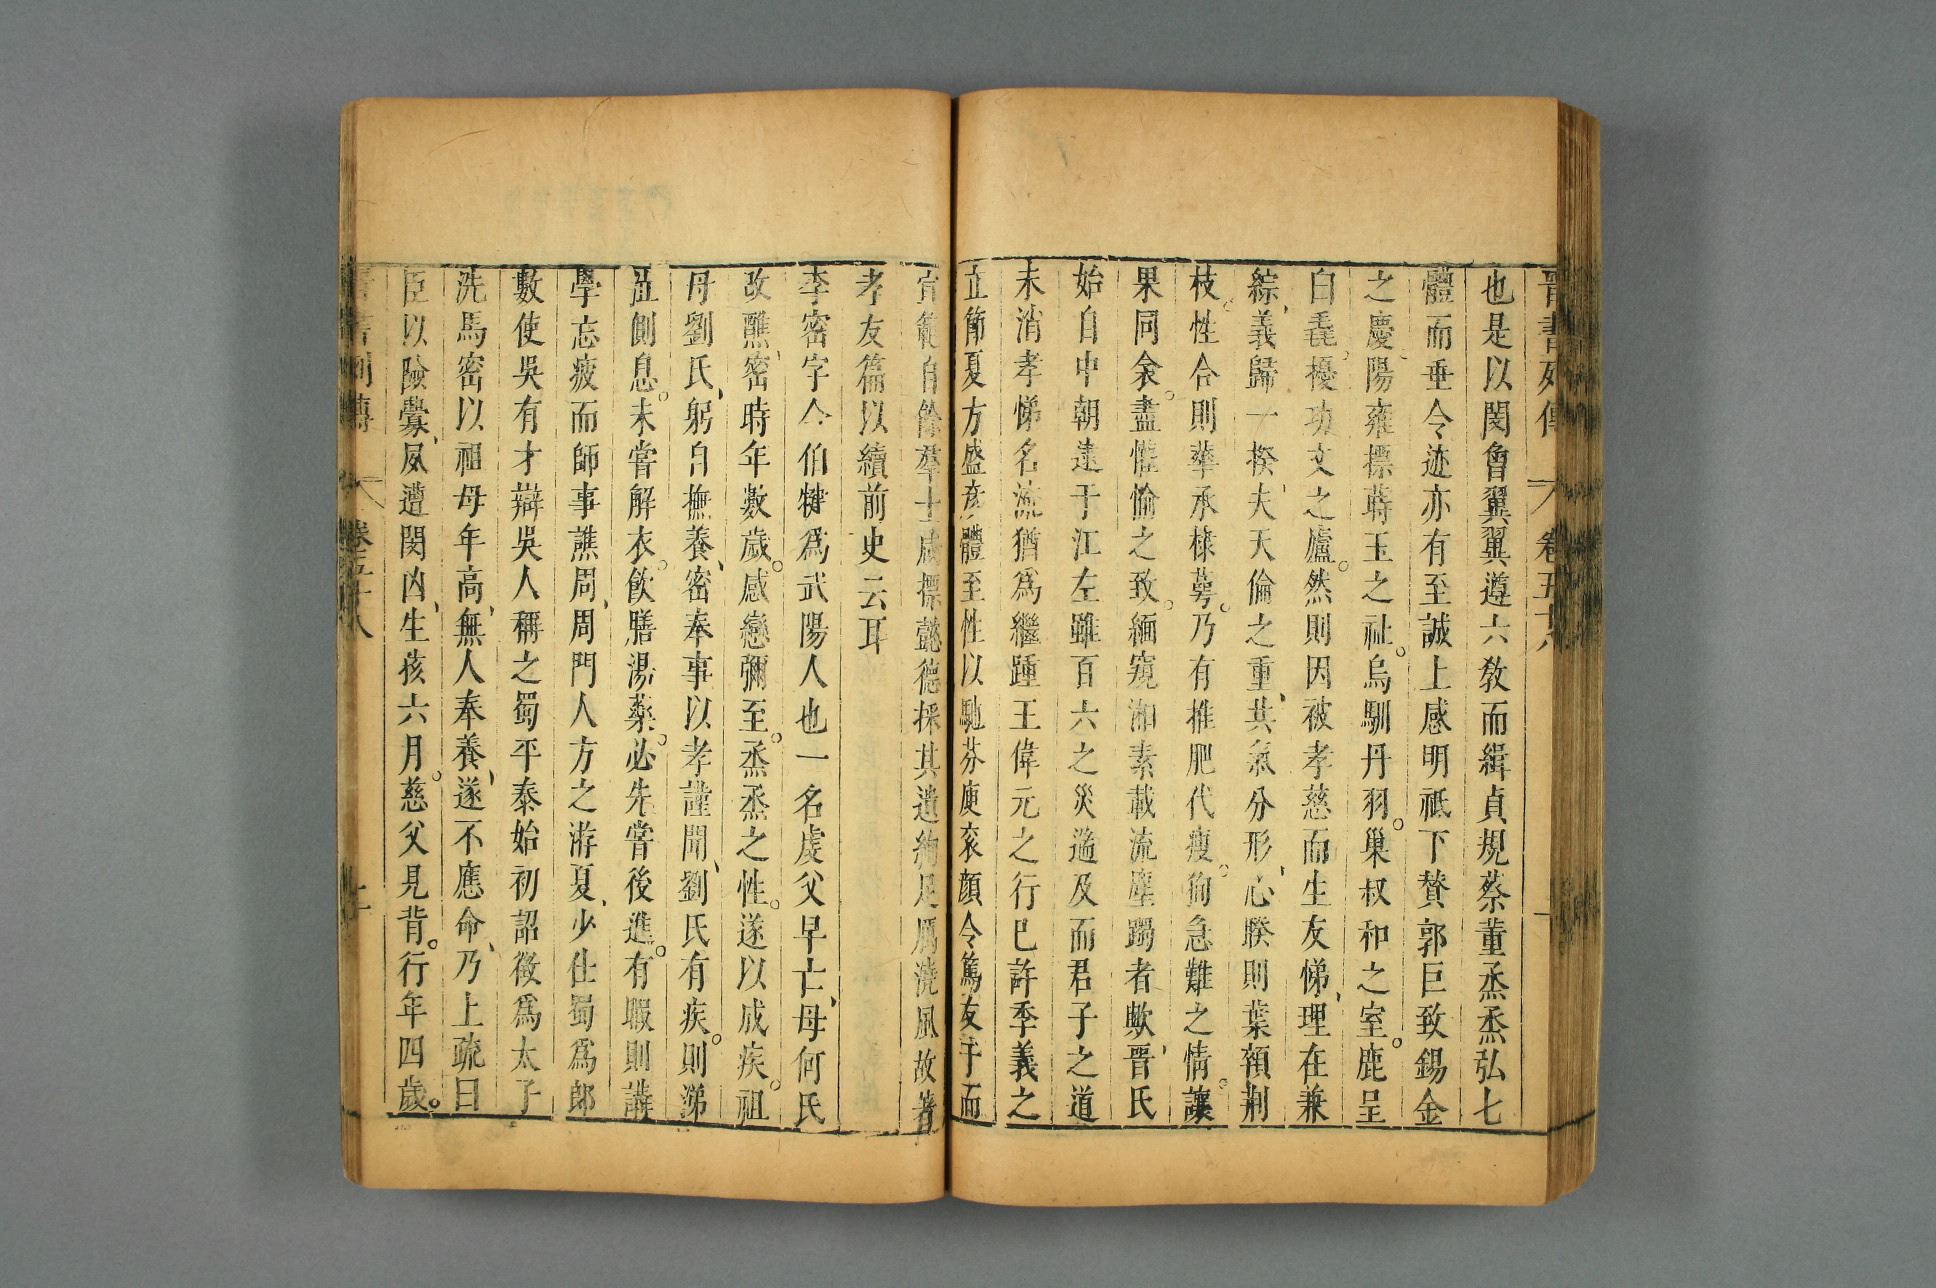 晉書列傳 卷五十八 一
也是以閔曾翼翼遵六敎而緝貞規蔡董烝烝弘七
體而垂令迹亦有至誠上感明祗下贊郭巨致錫金
之慶陽雍標蒔玉之祉烏馴丹羽巢叔和之室鹿呈
白毳擾功文之廬然則因彼孝慈而生友悌理在兼
綜義歸一揆夫天倫之重共氣分形心睽則葉顇荆
枝性合則華承棣萼乃有推肥代瘦徇急難之情讓
果同衾盡懽愉之致緬窺湘素載流塵躅者歟晉氏
始自中朝逮于江左雖百六之災遄及而君子之道
未消孝悌名流猶爲繼踵王偉元之行已許季義之
立節夏方盛彦體至性以馳芬庾衮顔含篤友于而
宣範自餘羣士咸標懿德採其遺絢足厲澆風故著
孝友篇以續前史云耳
李密字令伯犍爲武陽人也一名虔父早亡母何氏
改醮密時年數歲感戀彌至烝烝之性遂以成疾祖
母劉氏躬自撫養密奉事以孝謹聞劉氏有疾則涕
泣側息未嘗解衣飮膳湯藥必先嘗後進有暇則講
學忘疲而師事譙周周門人方之游夏少仕蜀爲郎
數使吳有才辯吳人稱之蜀平泰始初詔徵爲太子
洗馬密以祖母年高無人奉養遂不應命乃上疏曰
臣以險釁夙遭閔凶生孩六月慈父見背行年四歲
晉書列傳 卷五十八